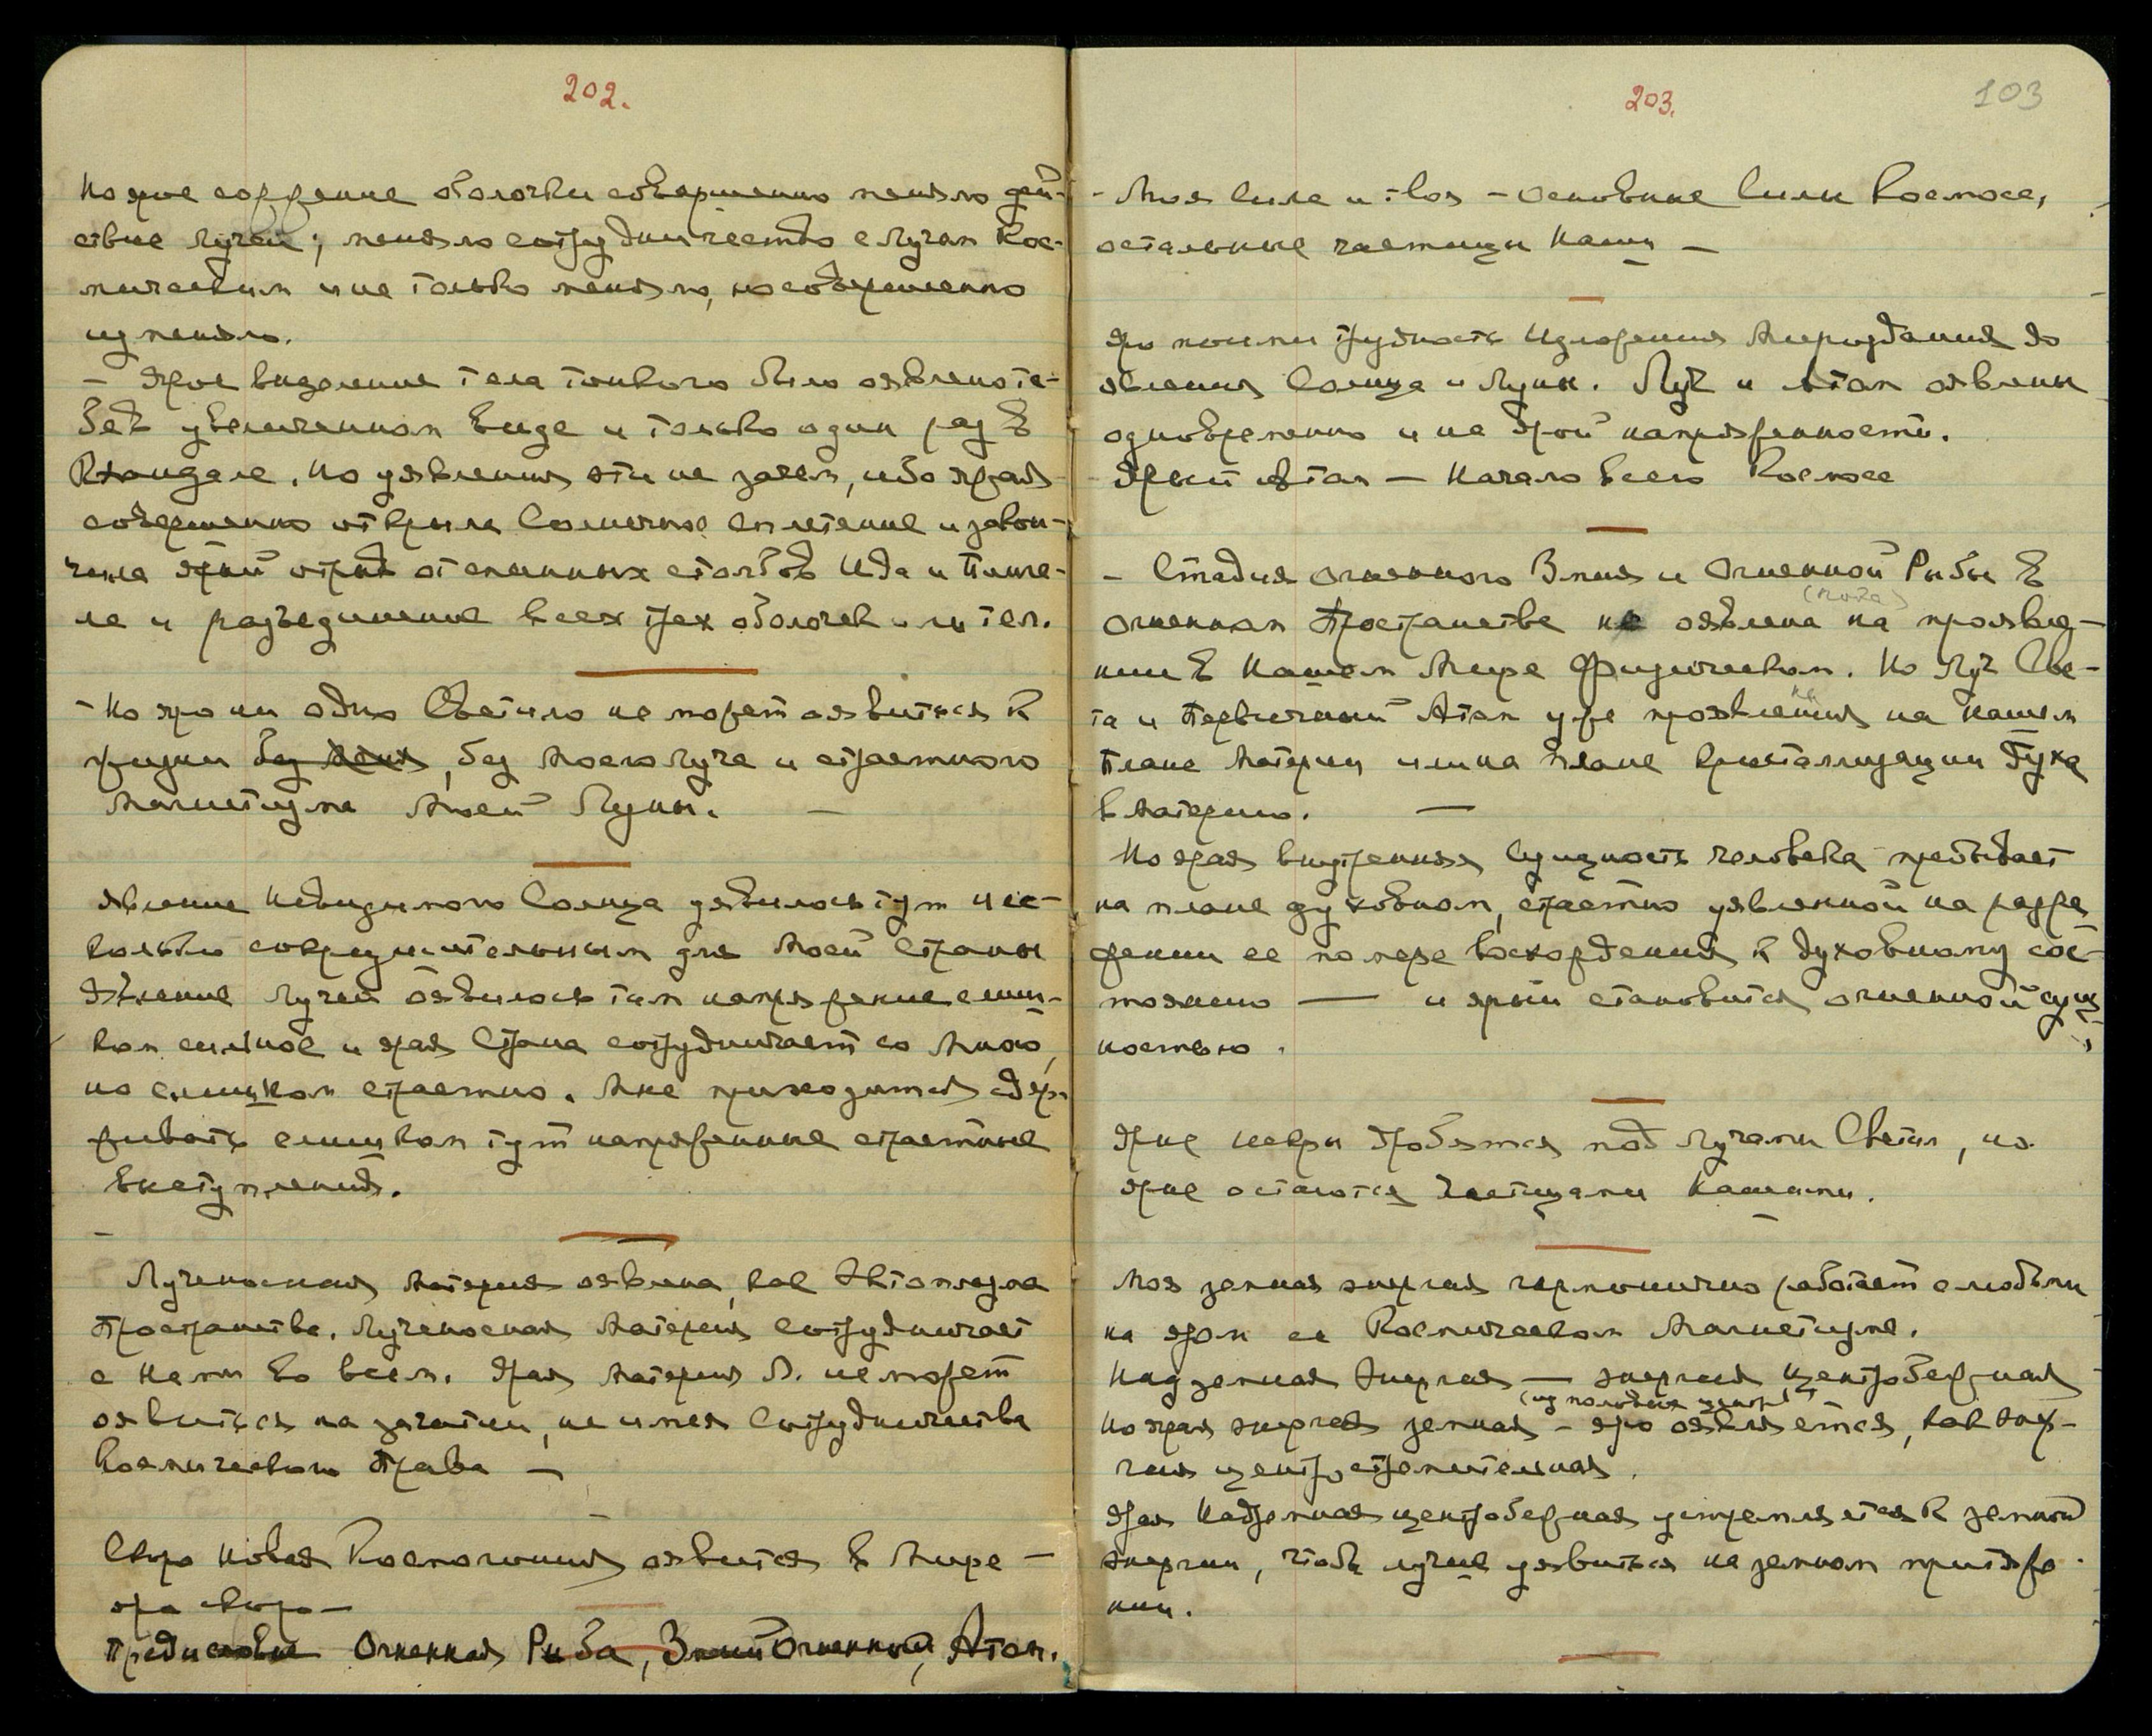 202.
Но ярое сожжение оболочки совершенно меняло дей-
ствие лучей; меняло сотрудничество с Лучам Кос-
мическим и не только меняло, но совершенно
изменяло.
– Ярое выделение тела тонкого было оявлено те-
бе в увеличенном виде и только один раз в
Кхандале. Но уявления эти не затем, ибо ярая
совершенно открыла Солнечное сплетение и закон-
чила ярый отрыв от спинных столбов Ида и Пинга-
ле и разъединение всех трех оболочек или тел.
– Но яро ни одно Светило не может оявиться к
жизни без Меня, без Моего Луча и страстного
Магнетизма Моей Луны. –
Явление Невидимого Солнца уявилось тут нес-
колько сокрушительным для Моей Страны
Явление Лучей оявилось там напряжение слиш-
ком сильное и ярая Страна сотрудничает со Мною,
но слишком страстно. Мне приходится сдер-
живать слишком тут напряженные страстные
выступления.
Лученосная Материя оявлена, как Светоплазма
Пространства. Лученосная Материя сотрудничает
с Нами во всем. Ярая Материя Л. не может
оявиться на зачатии, не имея Сотрудничества
Космического Права –
Скоро новая Космогония оявится в Мире –
яро скоро –
Предисловие Огненная Рыба, Змий Огненный, Атом.
203.
103
– Моя Сила и твоя – основные Силы Космоса,
остальные частицы Наши –
Яро пойми трудность Изложения Мироздания до
явления Солнца и Луны. Луч и Атом оявлены
одновременно и на ярой напряженности.
Ярый Атом – Начало всего Космоса
– Стадия Огненного Змия и Огненной Рыбы в
(пока)
Огненном Пространстве не оявлена на проявле-
нии в Нашем Мире Физическом. Но Луч Све-
та и Первичный Атом уже проявления на нашем
Плане Материи или на Плане Кристаллизации Духа
в Материю. –
Но ярая внутренняя Сущность человека пребывает
на плане духовном, страстно уявленной на разре-
жении ее по мере восхождения к духовному сос-
тоянию – и ярый становится огненной сущ-
ностью.
Ярые искры дробятся под Лучами Светил, но
ярые остаются Частицами Нашими.
Моя земная энергия гармонично работает с любым
на яром ее Космическом Магнетизме.
Надземная Энергия – энергия центробежная
(из полюбия центр)
Но ярая энергия земная – яро оявляется, как энер-
гия центростремительная.
Ярая Надземная центробежная устремляется к земной
энергии, чтобы лучше уявиться на земном притяже-
нии.